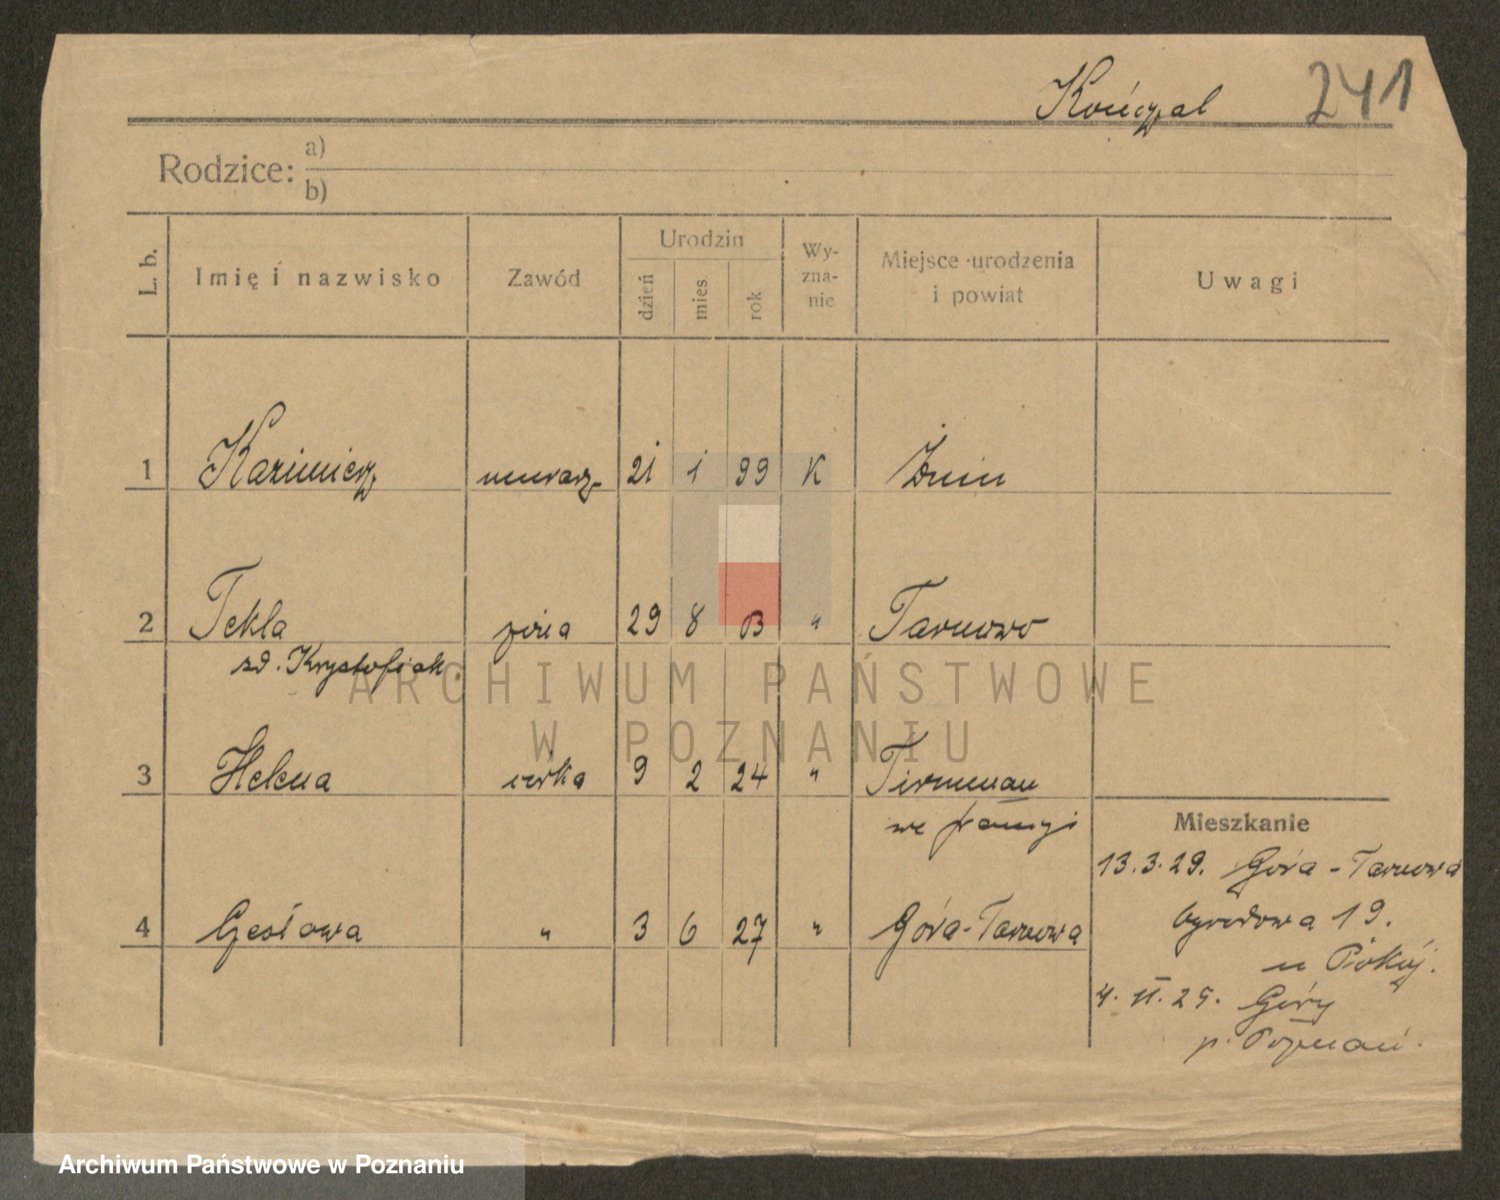 Kończal 241
Rodzice: a)
b)
L. b. Imię i nazwisko Zawód Urodzin dzień mies. rok Wy-zna-nie Miejsce urodzenia i powiat Uwagi
1 Kazimierz murarz 21 1 99 K Żnin
2 Tekla żona 29 8 " Tarnowo
zd. Krystofiak
3 Helena córka 9 2 24 "
we
4 Czesława " 3 6 27 " Góra-Tarnowa
Mieszkanie
13.3.29. Góra-Tarnowa
19.
u
4. II. 29. Góry
p. Poznań.
ARCHIWUM PAŃSTWOWE
W POZNANIU
Archiwum Państwowe w Poznaniu